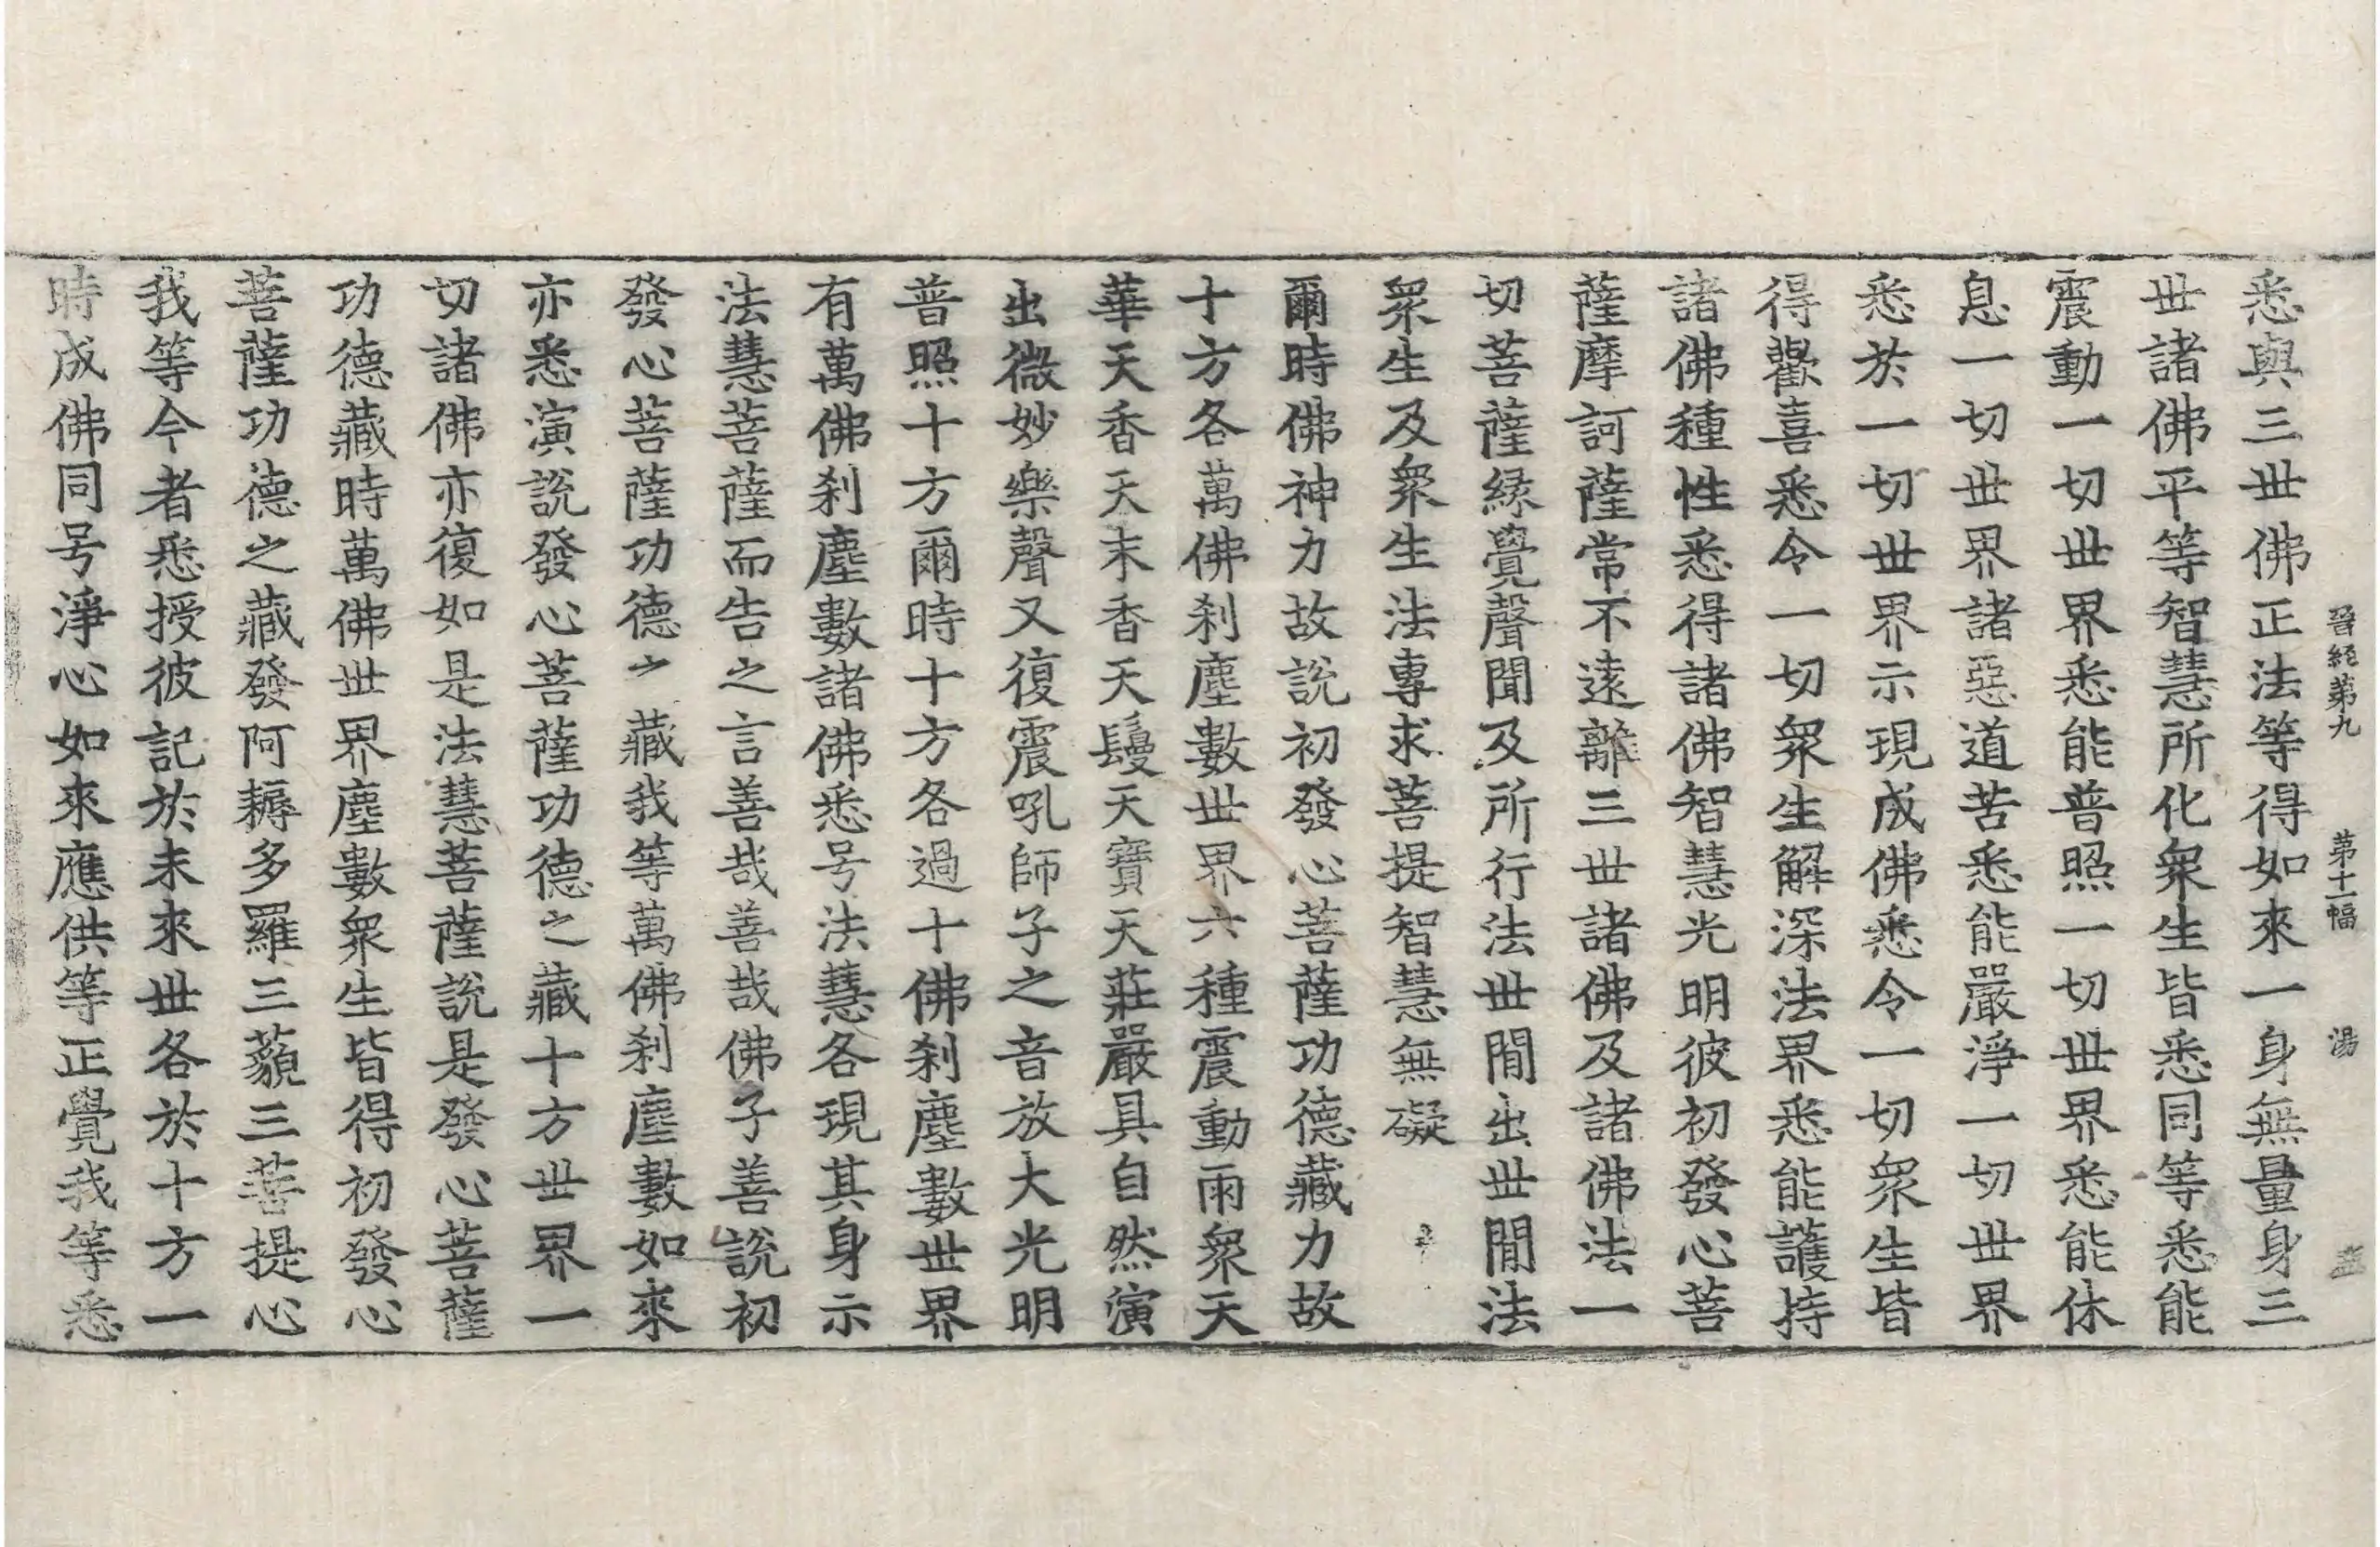 晉經第九　第十二幅　湯
悉與三世佛正法等得如來一身無量身三
世諸佛平等智慧所化衆生皆悉同等悉能
震動一切世界悉能普照一切世界悉能休
息一切世界諸惡道苦悉能嚴淨一切世界
悉於一切世界示現成佛悉令一切衆生皆
得歡喜悉令一切衆生解深法界悉能護持
諸佛種性悉得諸佛智慧光明彼初發心菩
薩摩訶薩常不遠離三世諸佛及諸佛法一
切菩薩緣覺聲聞及所行法世間出世間法
衆生及衆生法專求菩提智慧無礙
爾時佛神力故說初發心菩薩功德藏力故
十方各萬佛刹塵數世界六種震動雨衆天
華天香天末香天鬘天寶天莊嚴具自然演
出微妙樂聲又復震吼師子之音放大光明
普照十方爾時十方各過十佛刹塵數世界
有萬佛刹塵數諸佛悉号法慧各現其身示
法慧菩薩而告之言善哉善哉佛子善說初
發心菩薩功德之藏我等萬佛刹塵數如來
亦悉演說發心菩薩功德之藏十方世界一
切諸佛亦復如是法慧菩薩說是發心菩薩
功德藏時萬佛世界塵數衆生皆得初發心
菩薩功德之藏發阿耨多羅三藐三菩提心
我等今者悉授彼記於未來世各於十方一
時成佛同号淨心如來應供等正覺我等悉